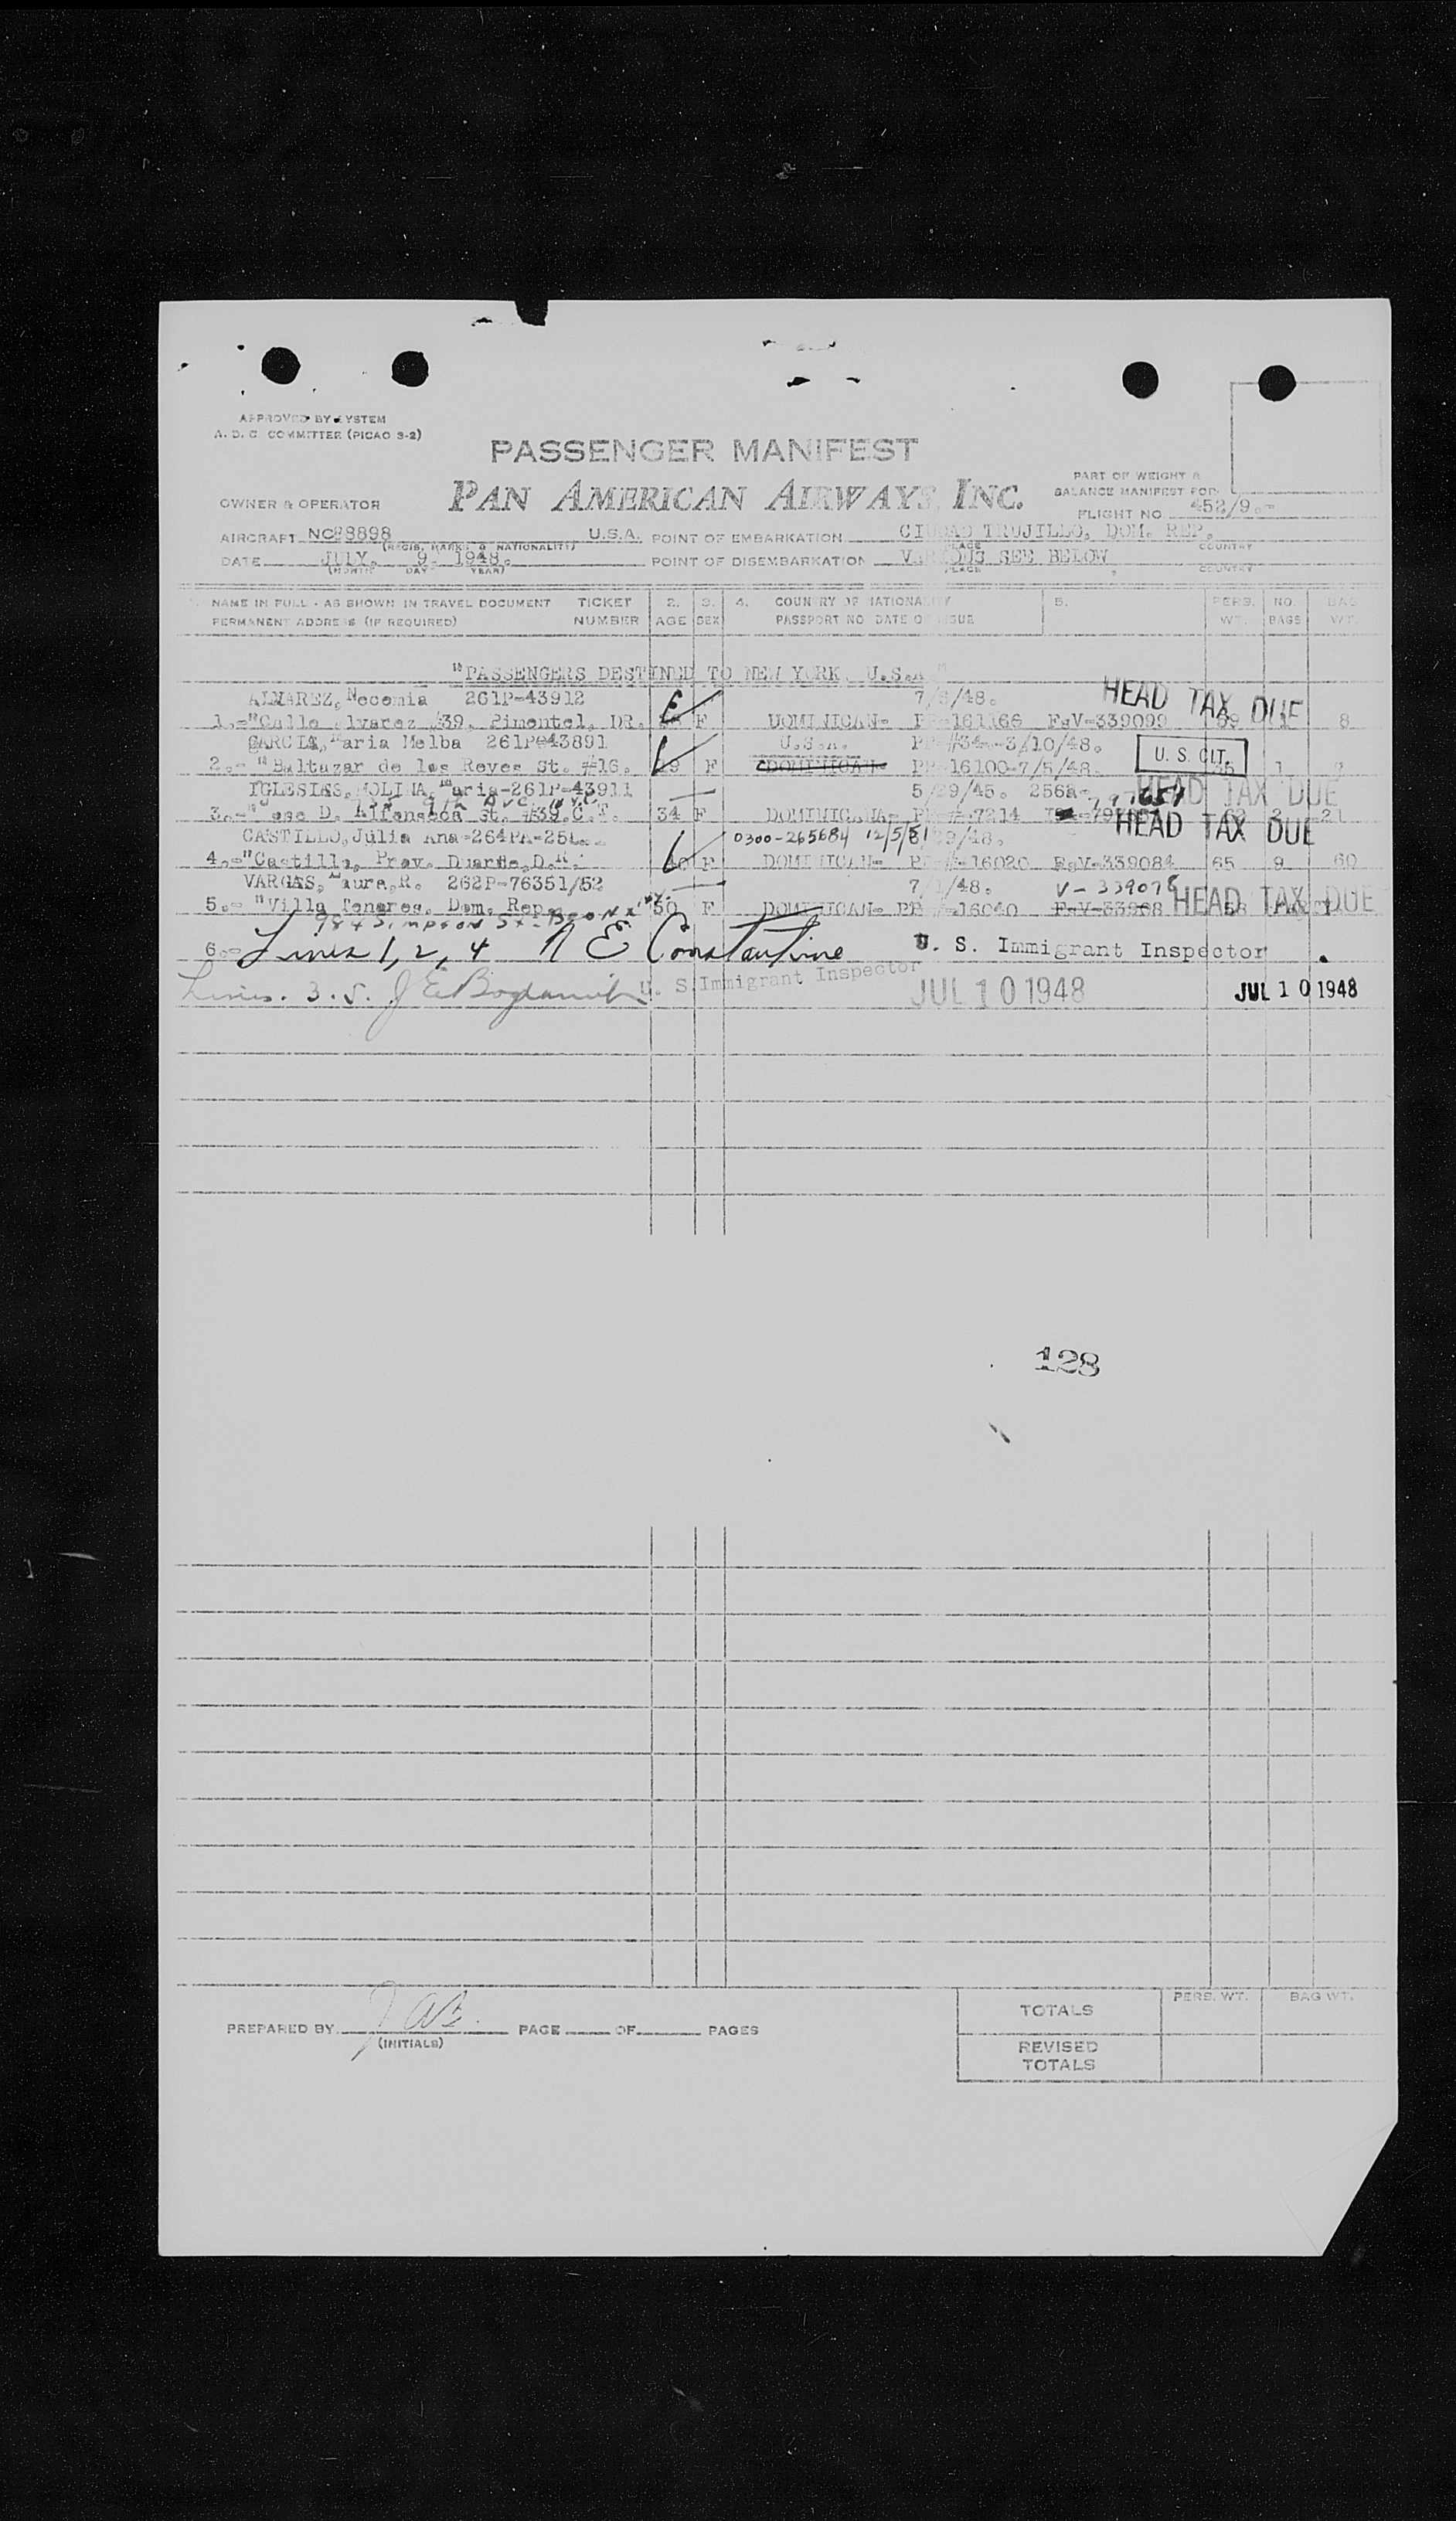 APPROVED BY SYSTEM
A. D. C. COMMITTEE (PICAO 3-2)
PASSENGER MANIFEST
PART OF WEIGHT &
BALANCE MANIFEST FOR:
OWNER & OPERATOR PAN AMERICAN AIRWAYS, INC.
FLIGHT NO. 452/9.-
AIRCRAFT NC88898 U.S.A. POINT OF EMBARKATION CIUDAD TRUJILLO, DOM. REP.
(REGIS. MARKS & NATIONALITY) PLACE COUNTRY
DATE JULY. 9. 1948. POINT OF DISEMBARKATION VARIOUS SEE BELOW
(MONTH DAY YEAR) PLACE COUNTRY
NAME IN FULL - AS SHOWN IN TRAVEL DOCUMENT TICKET 2. 3. 4. COUNTRY OF NATIONALITY 5. PERS. NO. BAG
PERMANENT ADDRESS (IF REQUIRED) NUMBER AGE SEX PASSPORT NO DATE OF ISSUE WT. BAGS WT.
"PASSENGERS DESTINED TO NEW YORK, U.S.A."
ALVAREZ, Necomia 261P-43912 7/ /48. HEAD TAX DUE
1.-"Calle Alvarez #39, Pimentel, DR. F DOMINICAN- PP-161166 FsV-339099 59 1 8
GARCIA, Maria Melba 261P-43891 U.S.A. PP #34--3/10/48. U. S. CIT.
2.-"Baltazar de los Reyes St. #16. F DOMINICAN- PP-16100-7/5/48. 1
IGLESIAS, MOLINA, Maria-261P-43911 5/29/45. 256a- HEAD TAX DUE
3.-"Jose D. Alfenseca St. #39.C.T. 34 F DOMINICANA- PP #-7214 21
CASTILLO, Julia Ana-264PA-25 0300-265684 12/5/51 29/48. HEAD TAX DUE
4.-"Castillo, Prov. Duarte, D.R. F DOMINICAN- PP #-16020 FsV-339084 65 9 60
VARGAS, Maura, R. 262P-76351/52 7/1/48. V-339078 HEAD TAX DUE
5.-"Villa Tenares. Dom. Rep. 50 F DOMINICAN- PP #-16040
984 Simpson St-Bronx
6.- Lines 1, 2, 4 N E Constantine U. S. Immigrant Inspector
Lines. 3. 5. J E Bogdanich U. S Immigrant Inspector JUL 10 1948 JUL 10 1948
128
PREPARED BY (INITIALS) PAGE OF PAGES
TOTALS PERS. WT. BAG WT.
REVISED
TOTALS